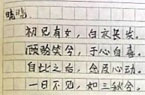 嗨嗨:
初见有女,白衣长裳。
顾盼笑兮,于心自喜。
自此之始,念及心动。
一日不见,如三秋兮。